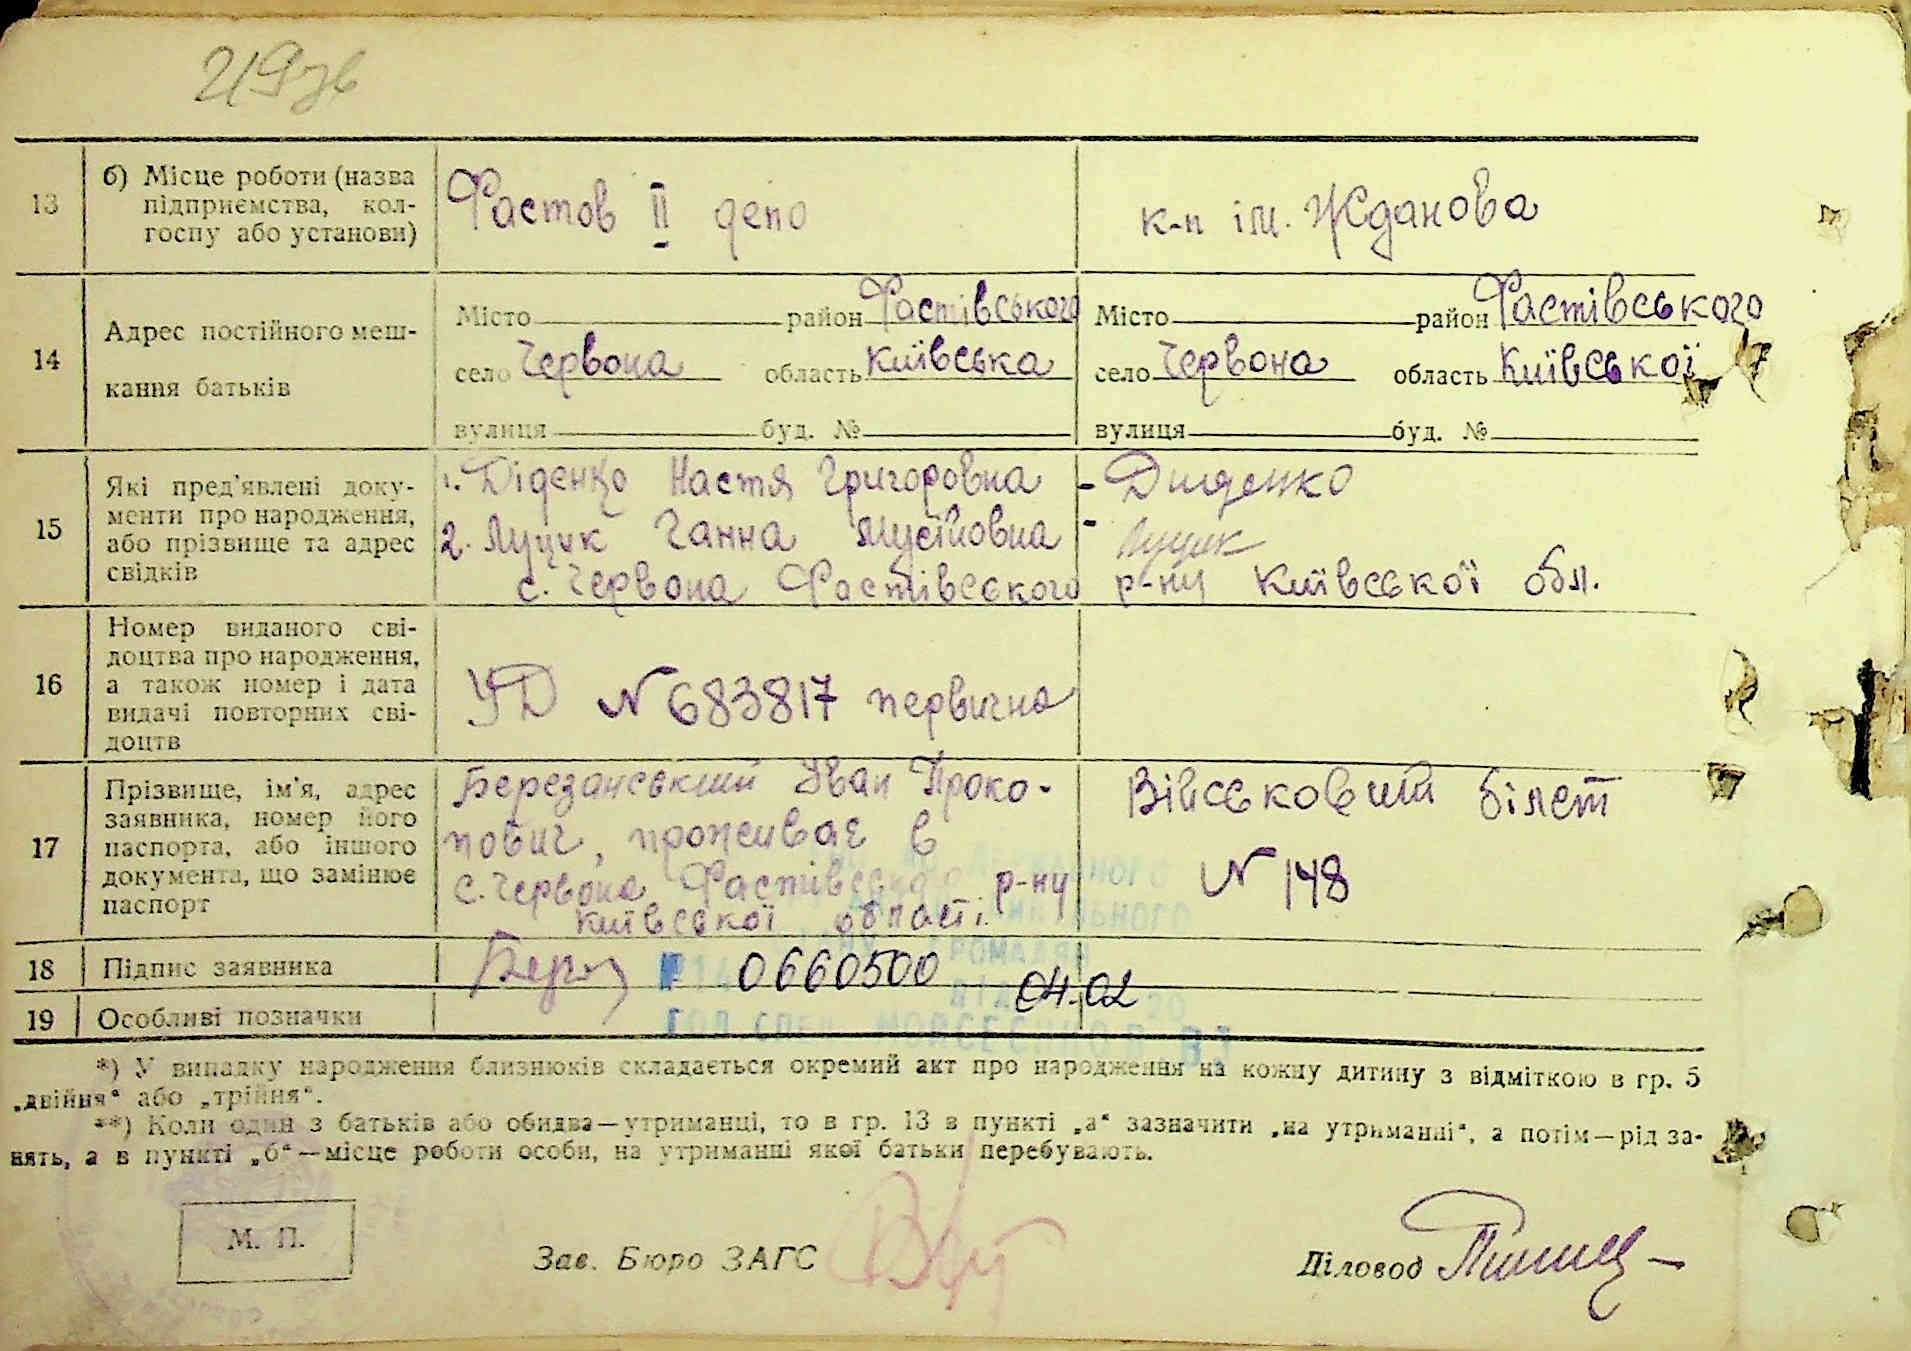 13
б) Місце роботи (назва
підприємства, кол-
госпу або установи)
Фастов II депо
к-п ім. Жданова
14
Адрес постійного меш-
кання батьків
Місто район Фастівського
село Червона область Київська
вулиця буд. №
Місто район Фастівського
село Червона область Київської
вулиця буд. №
15
Які пред'явлені доку-
менти про народження,
або прізвище та адрес
свідків
1. Діденко Настя Григоровна - Диденко
2. Луцик Ганна Мусійовна - Луцик
с. Червона Фастівського р-ну Київської обл.
16
Номер виданого сві-
доцтва про народження,
а також номер і дата
видачі повторних сві-
доцтв
УД № 683817 первична
17
Прізвище, ім'я, адрес
заявника, номер його
паспорта, або іншого
документа, що замінює
паспорт
Березанський Іван Проко-
пович, проживає в
с. Червона Фастівського р-ну
Київської області.
Військовий білет
№ 148
18
Підпис заявника
0660500 04.02
ГРОМАДЯН
19
Особливі позначки
*) У випадку народження близнюків складається окремий акт про народження на кожну дитину з відміткою в гр. 5
„двійня“ або „трійня“.
**) Коли один з батьків або обидва—утриманці, то в гр. 13 в пункті „а“ зазначити „на утриманні“, а потім—рід за-
нять, а в пункті „б“—місце роботи особи, на утриманні якої батьки перебувають.
М. П.
Зав. Бюро ЗАГС
Діловод